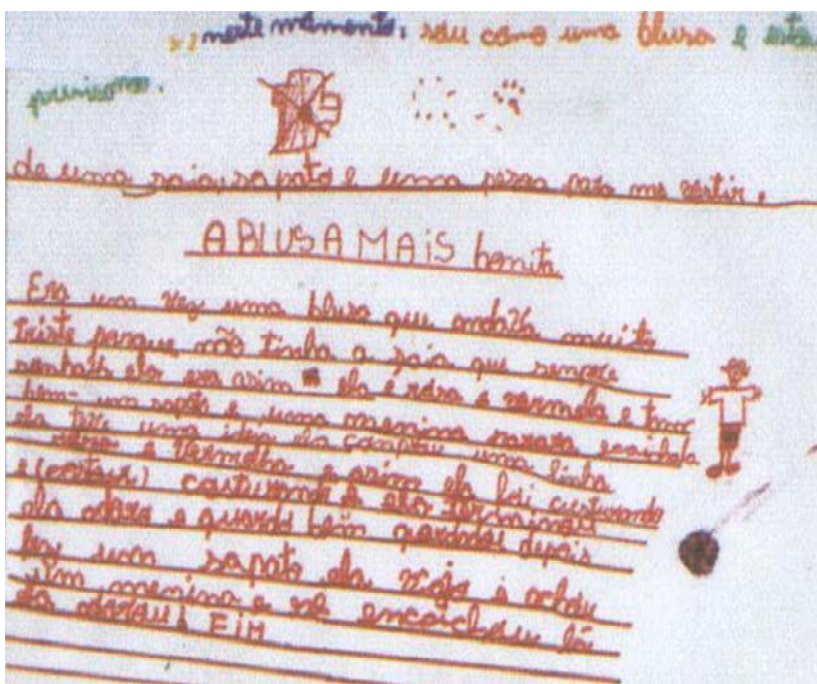 neste momento, sou como uma blusa e esto
preciso
de uma saia, sapato e uma pesoa para me vestir.
A BLUSA MAIS bonita
Era um vez uma blusa que andava muito
triste porque não tinha a saia que sempre
sonhava ela era asim ela é rosa e vermela e tan
bem um sapato e uma menina
ela teve uma ideia ela comprou uma linha
rosa e vermelha e asim ela foi custurando
e costurando e ela terminou
ela adora e guarda bem guardada depois
fez um sapato da roja e achou
um menina e se encaichou lá
ela adorou! FIM